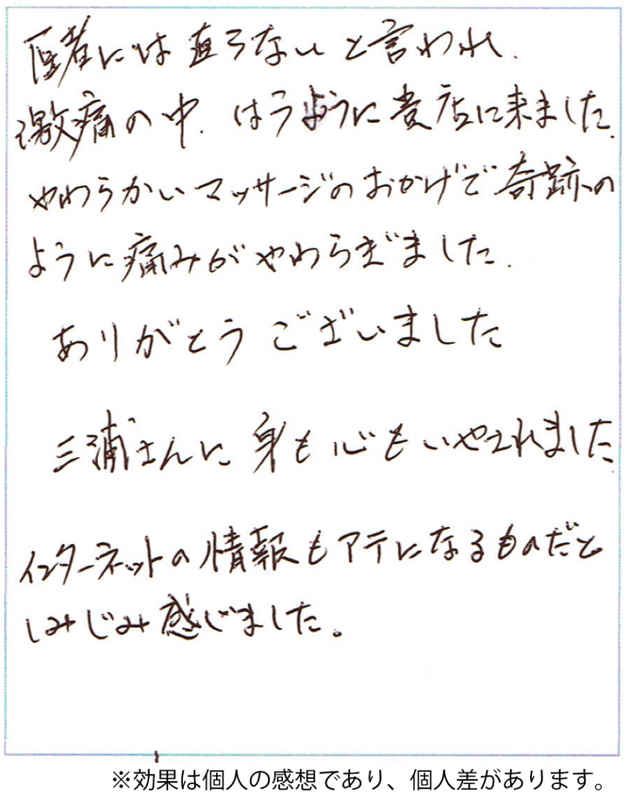 医者には直らないと言われ.
激痛の中.はうように貴店に来ました.
やわらかいマッサージのおかげで奇跡の
ように痛みがやわらぎました.
ありがとうございました
三浦さんに身も心もいやされました
インターネットの情報もアテになるものだと
しみじみ感じました。
※効果は個人の感想であり、個人差があります。